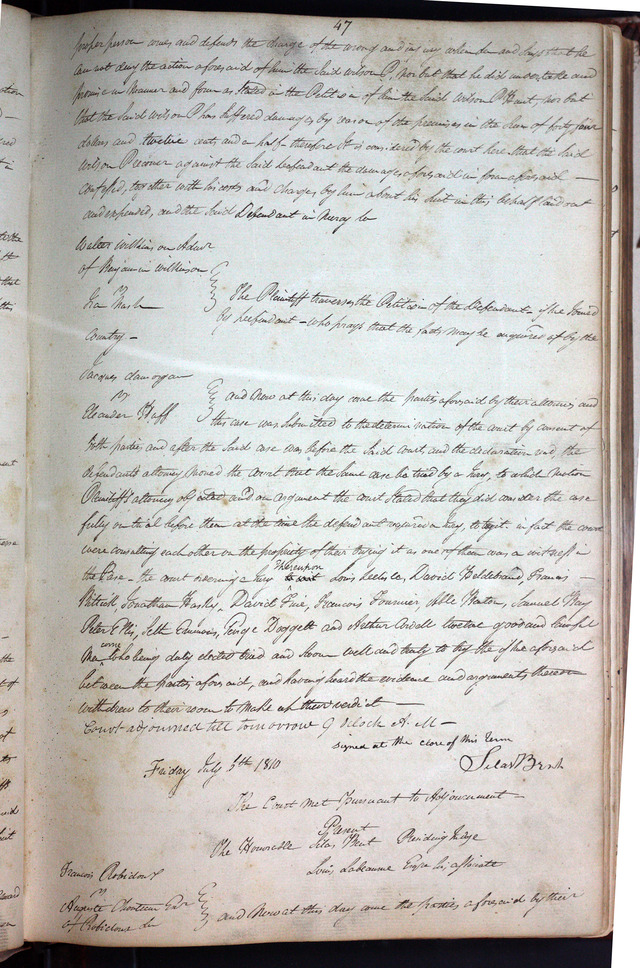 47
proper person comes and defends the charge of the wrong and injury when &c and says that he
can not deny the action aforesaid of him the said Wilson P. nor but that he did undertake and
promise in manner and form as stated in the Petition of him the said Wilson P Hunt, nor but
that the said Wilson P has suffered damages by reason of the premises in the sum of forty four
dollars and twelve cents and a half therefore It is considered by the court here that the said
Wilson P recover against the said defendant the damages aforesaid in form aforesaid —
confessed, together with his costs and charges by him about his suit in this behalf laid out
and expended, and the said Defendant in mercy &c
Walter Wilkinson Admr
of Benjamin Wilkinson
vs
Ira Nash
The Plaintiff traverses the Petition of the Defendant - issue Joined
by Defendant - who prays that the facts may be enquired of by the
Country -
Jacques Clamorgan
vs
Eleander Huff
and Now at this day come the parties aforesaid by their attornies and
this case was submitted to the determination of the court by consent of
both parties and after the said case was before the said court, and the declaration read, the
defendants attorney moved the court that the same case be tried by a Jury, to which motion
Plaintiff's attorney objected and on argument the court stated that they did consider the case
fully on trial before them at the time the defendant required a Jury, to wit. in fact the court
were consulting each other on the propriety of their trying it as one of them was a witness in
the Case - the court ordering a Jury Thereupon to wit Louis Leclele, David Hildebrand Francis —
Patrick Jonathan Hasky, David Fine, Francois Fournier, Able Wenton, Samuel Way
Peter Ellis, Seth Emmons, George Doggett and Arthur Andall twelve good and lawful
Men come who being duly elected tried and sworn well and truly to try the issue aforesaid
between the parties aforesaid, and having heard the evidence and arguments thereon
withdrew to their room to make up their verdict —
Court adjourned till tomorrow 9 oClock A. M —
signed at the close of this Term
Silas Bent
Friday July 5th 1810
The Court met Pursuant to Adjournment —
Present
The Honorable Silas Bent Presiding Judge
Louis Labeaume Esqr his associate
Francis Robidoux
vs
Auguste Chouteau Exr
of Robidoux &c
and Now at this day come the parties aforesaid by their